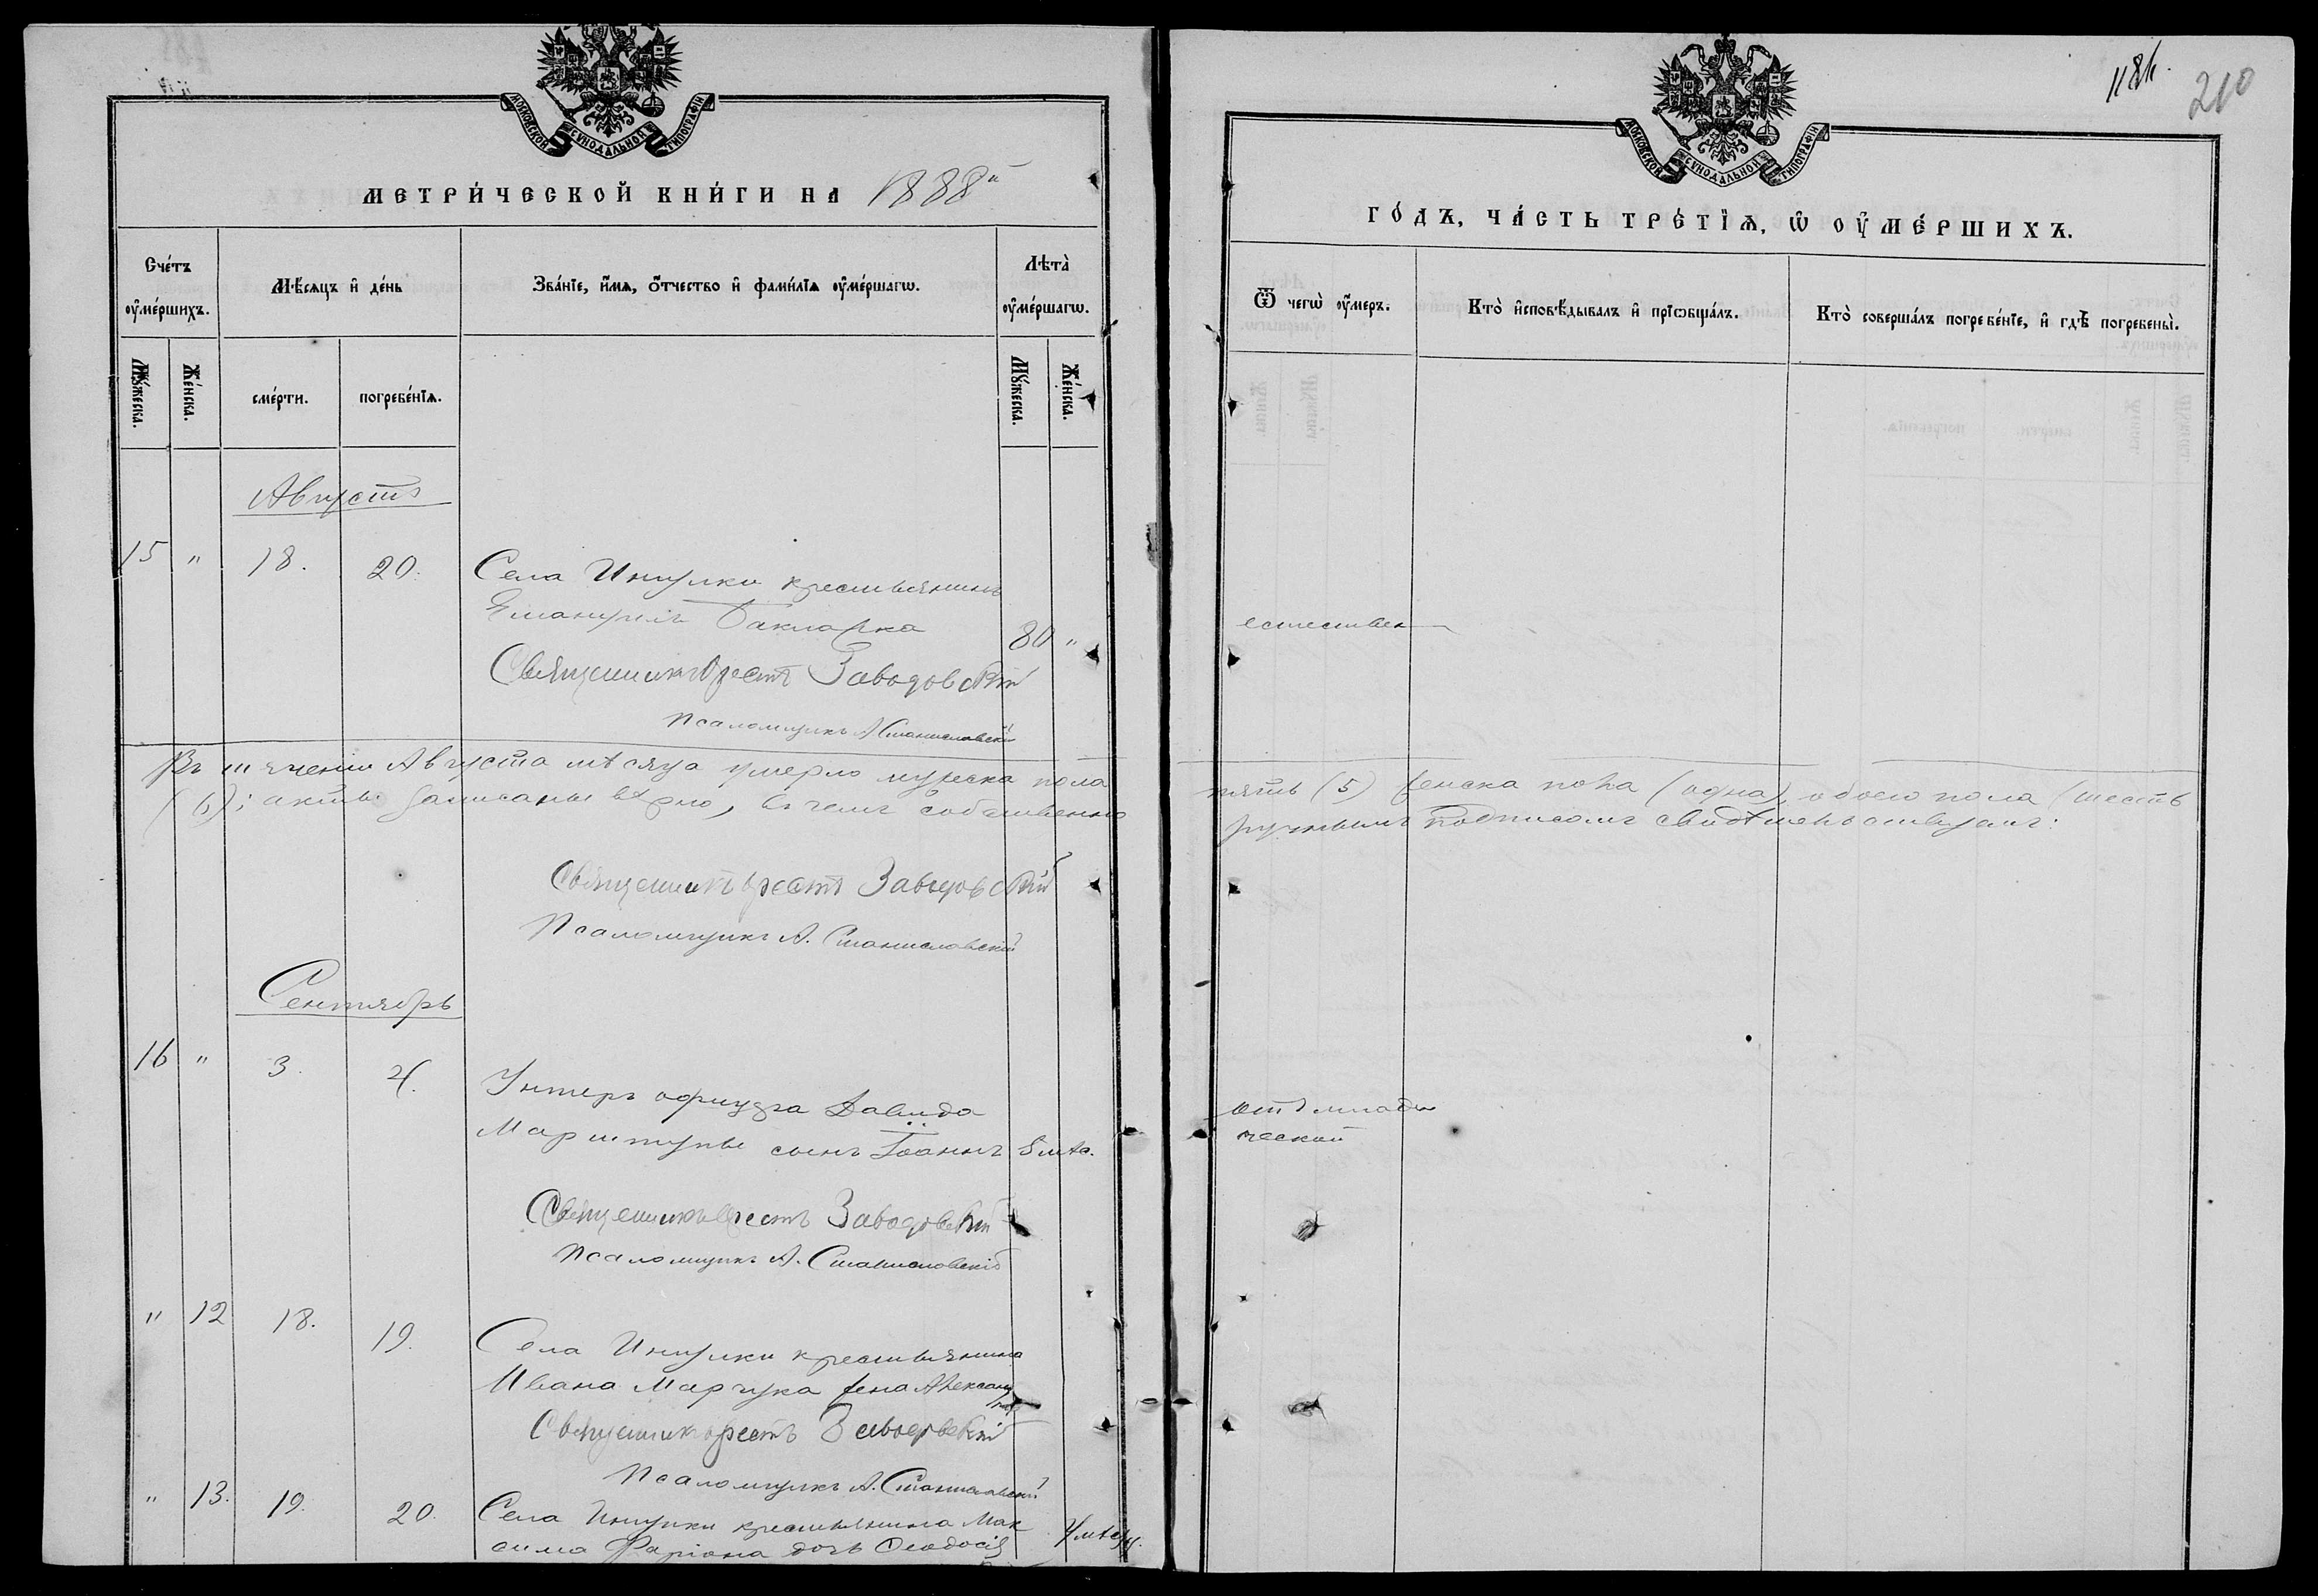 МОСКОВСКОЙ СѴНОДАЛЬНОЙ ТИПОГРАФІИ
МЕТРИ́ЧЕСКОЙ КНИ́ГИ НА 1888й
Сче́тъ ᲂу҆ме́ршихъ.
Мѣ́сяцъ и҆ де́нь
Зва́нїе, и҆́мя, ѻ҆́тчество и҆ фами́лїя ᲂу҆ме́ршагѡ.
Лѣта̀ ᲂу҆ме́ршагѡ.
Мꙋ́жеска.
Же́нска.
сме́рти.
погребе́нїѧ.
Мꙋ́жеска.
Же́нска.
Августъ
15 " 18. 20. Села Инушки крестьянинъ
Емануилъ 80 "
Священникъ Орестъ Заводовскій
Псаломщикъ А Станиславскій
Въ теченіи Августа мѣсяца умерло мужеска пола
(6); акты записаны вѣрно, въ чемъ собственно
Священникъ Орестъ Заводовскій
Псаломщикъ А. Станиславскій
Сентябрь
16 " 3. 4. Унтеръ офицера Давида
сынъ Іоаннъ
Священникъ Орестъ Заводовскій
Псаломщикъ А. Станиславскій
" 12 18. 19. Села Инушки крестьянина
Ивана Марчука жена Александра
Священникъ Орестъ Заводовскій
Псаломщикъ А. Станиславскій
" 13. 19. 20. Села Инушки крестьянина Мак
сима Фаріона дочь Феодосія
118
210
МОСКОВСКОЙ СѴНОДАЛЬНОЙ ТИПОГРАФІИ
ГО́ДЪ, ЧА́СТЬ ТРЕ́ТЇѦ, Ѽ ОУ҆МЕ́РШИХЪ.
Ѿ чегѡ̀ ᲂу҆́меръ.
Кто̀ и҆сповѣ́дывалъ и҆ прїѡбща́лъ.
Кто̀ соверша́лъ погребе́нїе, и҆ гдѣ̀ погребены̀.
естествен
пять (5) женска пола (одна), обоего пола (шесть
ручнымъ подписомъ свидѣтельствуемъ: